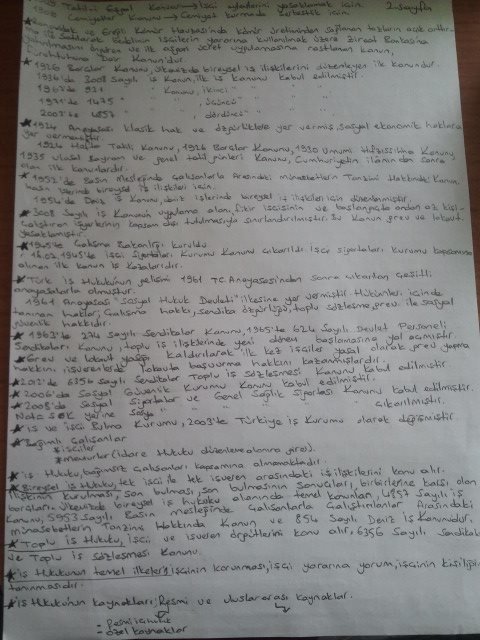 1909 Tatili Eşgal Kanunu → İşçi eylemlerini yasaklamak için.
Cemiyetler Kanunu → Cemiyet kurmada serbestlik için.
2. sayfa
ve Ereğli Kömür Havzasında kömür üretiminden sağlanan tozların açık arttır-
ma ile satılarak bedelinin işçilerin yararına kullanılmak üzere Ziraat Bankasına
yatırılmasını öngören ve ilk asgari ücret uygulamasına rastlanan kanun,
Hukukuna Dair Kanun'dur.
★ 1926 Borçlar Kanunu, ülkemizde bireysel iş ilişkilerini düzenleyen ilk kanundur.
1936'da 3008 Sayılı İş Kanun, ilk iş kanunu kabul edilmiştir.
1967'de 931 " Kanunu, ikinci " "
1971'de 1475 " " üçüncü " "
2003'de 4857 " " dördüncü " "
★ 1924 Anayasası klasik hak ve özgürlüklere yer vermiş, sosyal ekonomik haklara
yer vermemiştir.
★ 1924 Hafta Tatili Kanunu, 1926 Borçlar Kanunu, 1930 Umumi Hıfzıssıhha Kanunu,
1935 ulusal bayram ve genel tatil günleri Kanunu, Cumhuriyetin ilanından sonra
olan ilk kanunlardır.
★ 1952'de Basın Mesleğinde Çalışanlarla Arasındaki Münasebetlerin Tanzimi Hakkında Kanun.
basın işlerinde bireysel iş ilişkileri için.
1954'de Deniz İş Kanunu, deniz işlerinde bireysel iş ilişkileri için düzenlenmiştir.
★ 3008 Sayılı İş Kanunun uygulama alanı, fikir işçisinin ve başlangıçta ondan az kişi
çalıştıran işyerlerinin kapsam dışı tutulmasıyla sınırlandırılmıştır. Bu Kanun grev ve lokavt
yasaklamıştır.
★ 1945'de Çalışma Bakanlığı kuruldu.
16.07.1945'te İşçi Sigortaları Kurumu Kanunu çıkarıldı. İşçi sigortaları kurumu kapsamına
alınan ilk kanun iş kazalarıdır.
★ Türk İş Hukukunun gelişimi 1961 TC. Anayasası'ndan sonra çıkartılan çeşitli
anayasalarla olmuştur.
1961 Anayasası "Sosyal Hukuk Devleti" ilkesine yer vermiştir. Hükümleri içinde
tanınan haklar, Çalışma hakkı, sendika özgürlüğü, toplu sözleşme, grev ile sosyal
güvenlik hakkıdır.
★ 1963'te 274 Sayılı Sendikalar Kanunu, 1965'te 624 Sayılı Devlet Personeli
Sendikaları Kanunu, toplu iş ilişkilerinde yeni dönem başlamasına yol açmıştır.
★ Grev ve lokavt yasağı kaldırılarak ilk kez işçiler yasal olarak grev yapma
hakkını, işverenlerde lokavta başvurma hakkını kazanmışlardır.
★ 2012'de 6356 sayılı Sendikalar Toplu İş Sözleşmesi Kanunu kabul edilmiştir
★ 2006'da Sosyal Güvenlik Kurumu Kanunu kabul edilmiştir.
★ 2008'de Sosyal Sigortalar ve Genel Sağlık Sigortası Kanunu kabul edilmiştir.
Not: SSK yerine Sosyal " " " " çıkarılmıştır.
★ İş ve İşçi Bulma Kurumu, 2003'te Türkiye İş Kurumu olarak değişmiştir.
★ Bağımlı Çalışanlar
★ işçiler
★ memurlar (idare Hukuku düzenleme alanına girer).
★ İş Hukuku, bağımsız çalışanları kapsamına almamaktadır.
★ Bireysel İş Hukuku, tek işçi ile tek işveren arasındaki iş ilişkilerini konu alır.
İlişkinin kurulması, son bulması, son bulmasının sonuçları, birbirlerine karşı olan
borçları. Ülkemizde bireysel iş hukuku alanında temel kanunları, 4857 Sayılı İş
Kanunu, 5953 Sayılı Basın mesleğinde Çalışanlarla Çalıştıranlar Arasındaki
münasebetlerin Tanzimi Hakkında Kanun ve 854 Sayılı Deniz İş Kanunudur.
★ Toplu İş Hukuku, işçi ve işveren örgütlerini konu alır, 6356 Sayılı Sendikalar
ve Toplu İş sözleşmesi Kanunu.
★ İş Hukukunun temel ilkeleri, işçinin korunması, işçi yararına yorum, işçinin kişiliğinin
tanınmasıdır.
★ İş Hukuku'nun kaynakları, Resmi ve uluslararası kaynaklar.
- Resmi
- özel kaynaklar